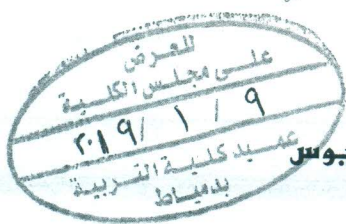 للعرض
على مجلس الكلية
٢٠١٩/ ١ / ٩
عميد كلية التربية
بدمياط
بوس